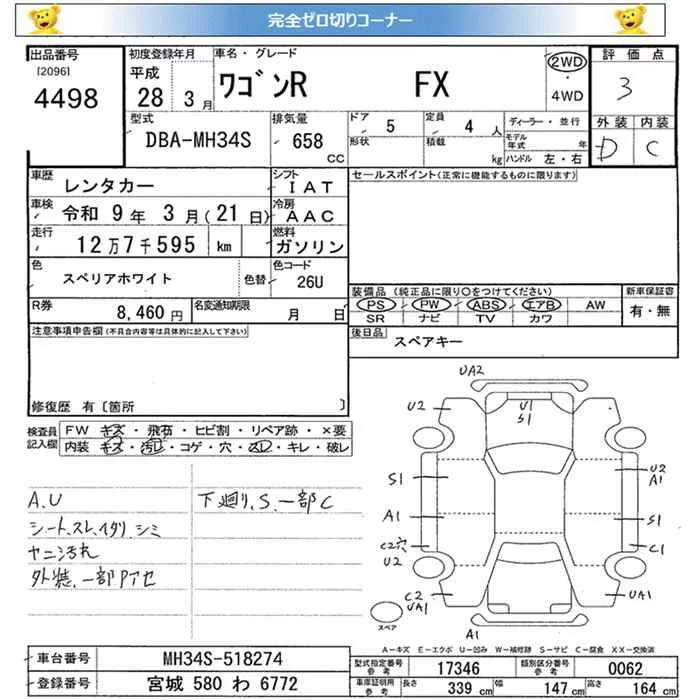 完全ゼロ切りコーナー
出品番号
[2096]
4498
初度登録年月
平成
28 3月
車名・グレード
ワゴンR FX
2WD
・
4WD
評価点
3
外装 内装
D C
型式
DBA-MH34S
排気量
658
CC
ドア
5
形状
定員
4 人
積載
kg
ディーラー・並行
モデル
年式 年
ハンドル 左・右
車歴
レンタカー
シフト
IAT
車検
令和 9年 3月(21日)
冷房
AAC
走行
12万7千595 km
燃料
ガソリン
色
スペリアホワイト
色替
色コード
26U
R券
8,460 円
名変通知期限
月 日
セールスポイント(正常に機能するものに限ります)
装備品 (純正品に限り○をつけてください)
PS PW ABS エアB AW
SR ナビ TV カワ
新車保証書
有・無
後日品
スペアキー
注意事項申告欄(不具合内容等は具体的に記入して下さい)
修復歴 有〔箇所 〕
検査員
記入欄
FW キズ・飛石・ヒビ割・リペア跡・×要
内装 キズ・汚れ・コゲ・穴・スレ・キレ・破レ
A.U
シート、スレ、イタリ シミ
ヤニ汚れ
外装、一部Pアセ
下廻り、S、一部C
UA2
U2
U1
S1
S1
A1
C2穴
U2
C2
UA1
U2
A1
S1
C1
UA1
A1
スペア
A-キズ E-エクボ U-凹み W-補修跡 S-サビ C-腐食 XX-交換済
車台番号
MH34S-518274
登録番号
宮城 580 わ 6772
型式指定番号
参考
17346
類別区分番号
参考
0062
車庫証明用
参考
長さ 339 cm
幅 147 cm
高さ 164 cm